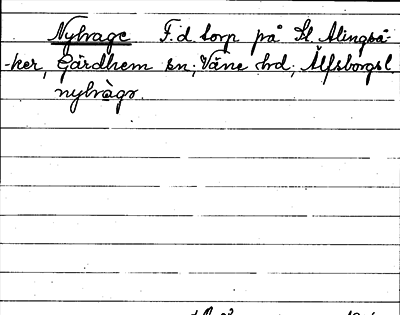 Nylvage F.d torp på St. Alingså-
-ker, Gärdhem sn; Väne hrd; Älfsborgs l.
nylvàgr.